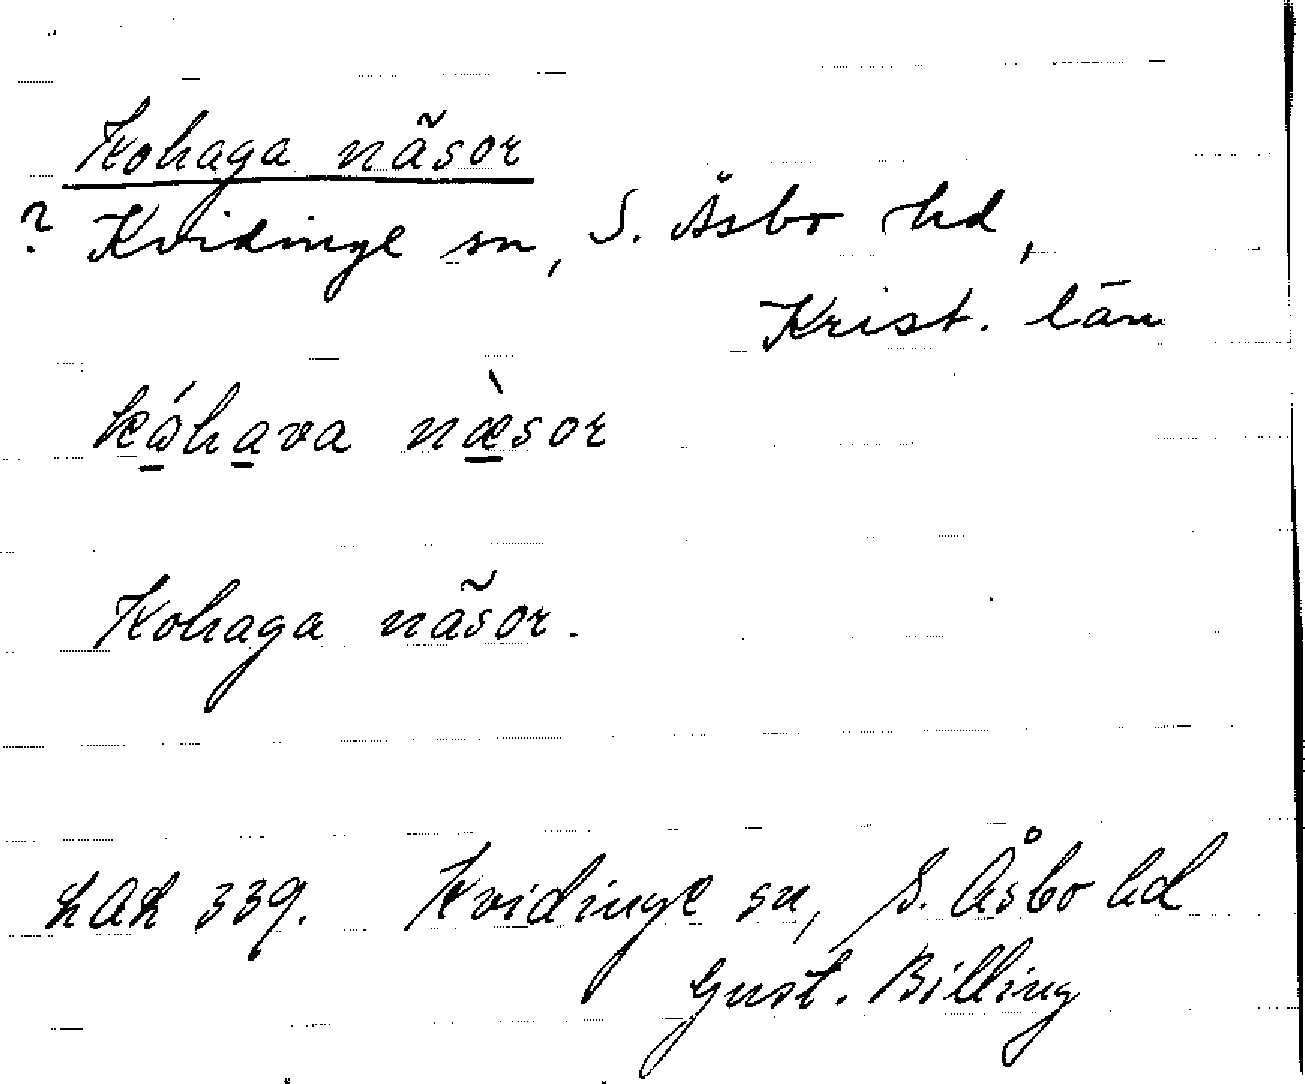 Kohaga näsor
? Kvidinge sn, S. Åsbo hd,
Krist. län
kóhava næ̀sor
Kohaga näsor.
LAL 339. Kvidinge sn, S. Åsbo hd
Gust. Billing